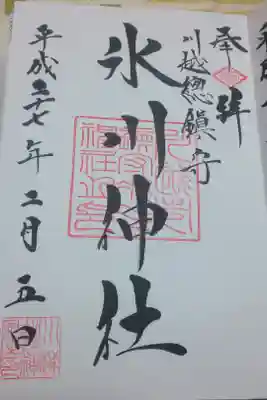 奉拝
川越總鎮守
氷川神社
平成二十七年二月五日